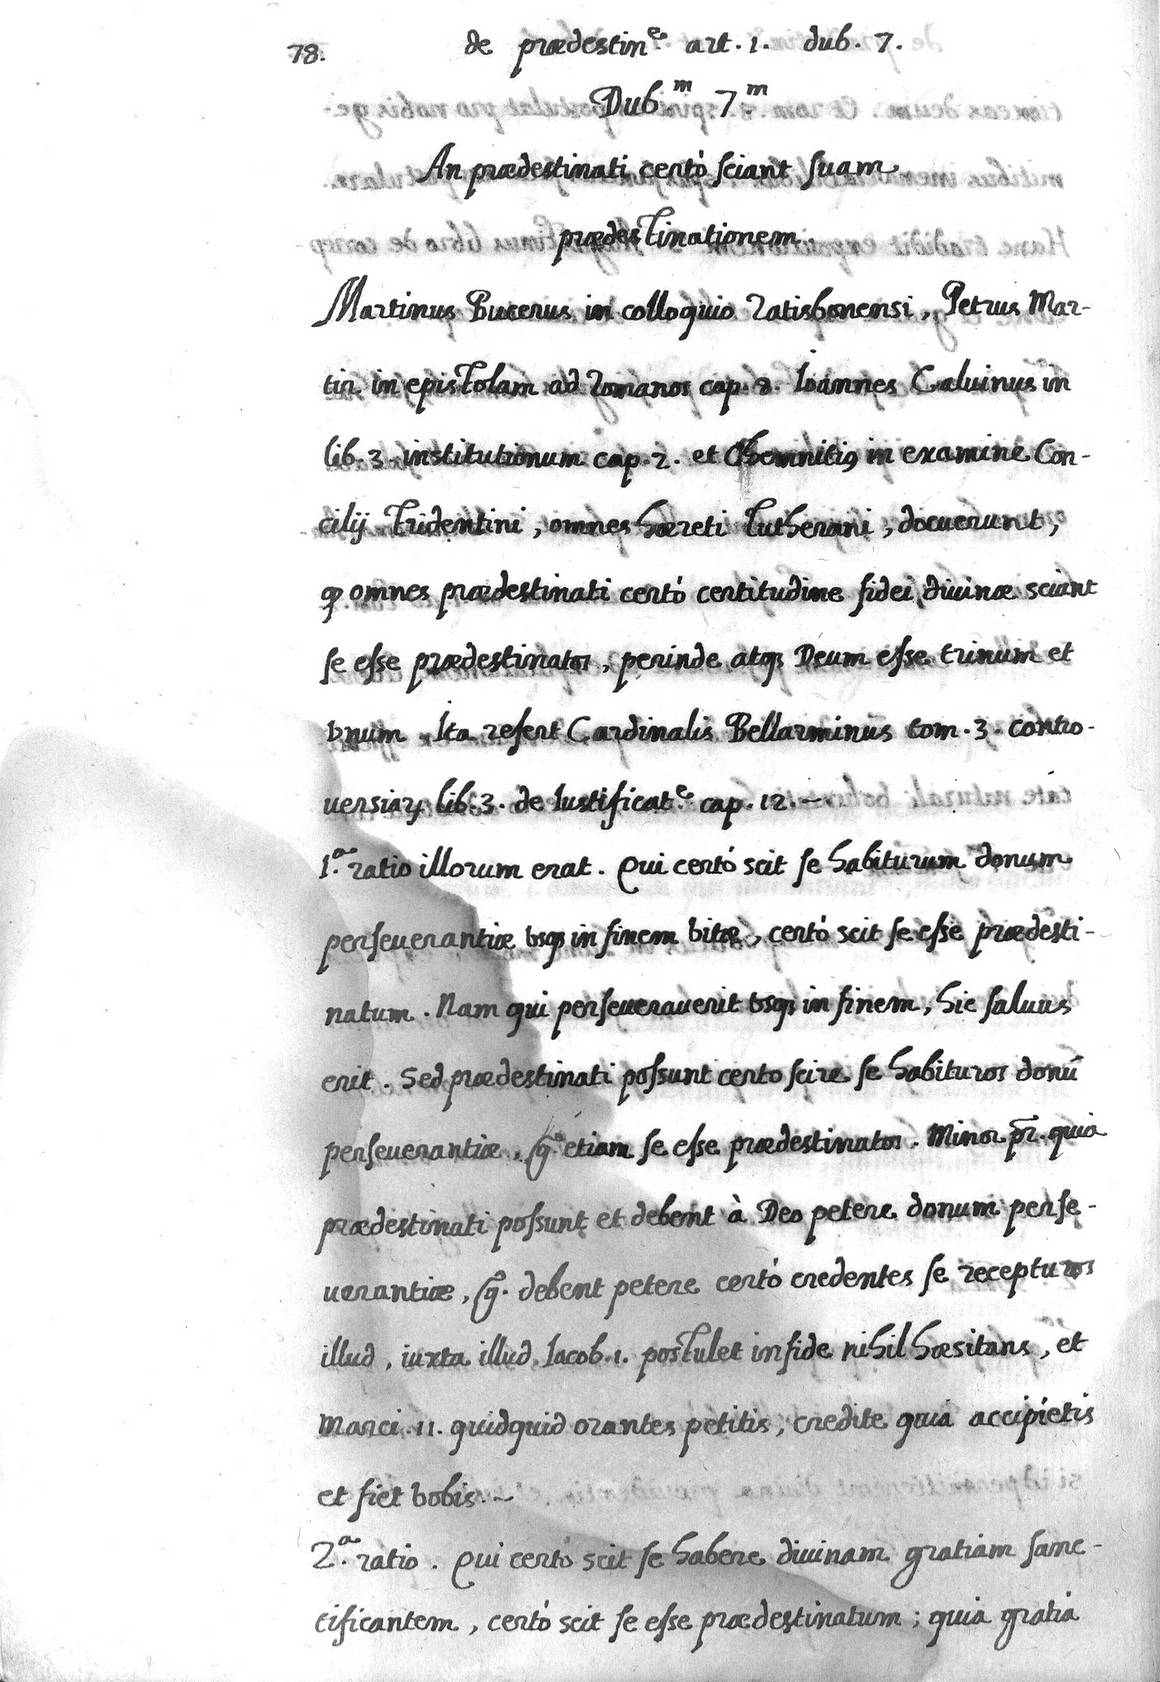 78. de prædestin.e art. 1. dub. 7.
Dub.m 7.m
An prædestinati certò sciant suam
prædestinationem.
Martinus Bucerus in colloquio Ratisbonensi, Petrus Mar-
tir in epistolam ad Romanos cap. 8. Ioannes Caluinus in
lib. 3. institutionum cap. 2. et Chemnitiꝰ in examine Con-
cilij Tridentini, omnes hæreti Lutherani, docuerunt,
ꝙ omnes prædestinati certò certitudine fidei diuinæ sciant
se esse prædestinatos, perinde atqꝫ Deum esse trinum et
vnum. Ita refert Cardinalis Bellarminus tom. 3. contro-
uersiaꝝ lib. 3. de Iustificat.e cap. 12. ~
1.a ratio illorum erat. Qui certò scit se habiturum donum
perseuerantiæ vsqꝫ in finem vitæ, certò scit se esse prædesti-
natum. Nam qui perseuerauerit vsqꝫ in finem, hic saluus
erit. Sed prædestinati possunt certo scire se habituros donū
perseuerantiæ, g.° etiam se esse prædestinatos. Minor pr̄. quia
prædestinati possunt et debent à Deo petere donum perse-
uerantiæ, g.° debent petere certò credentes se recepturos
illud, iuxta illud Iacob. 1. postulet in fide nihil hæsitans, et
Marci. 11. quidquid orantes petitis, credite quia accipietis
et fiet vobis. ~
2.a ratio. Qui certò scit se habere diuinam gratiam sanc-
tificantem, certò scit se esse prædestinatum; quia gratia